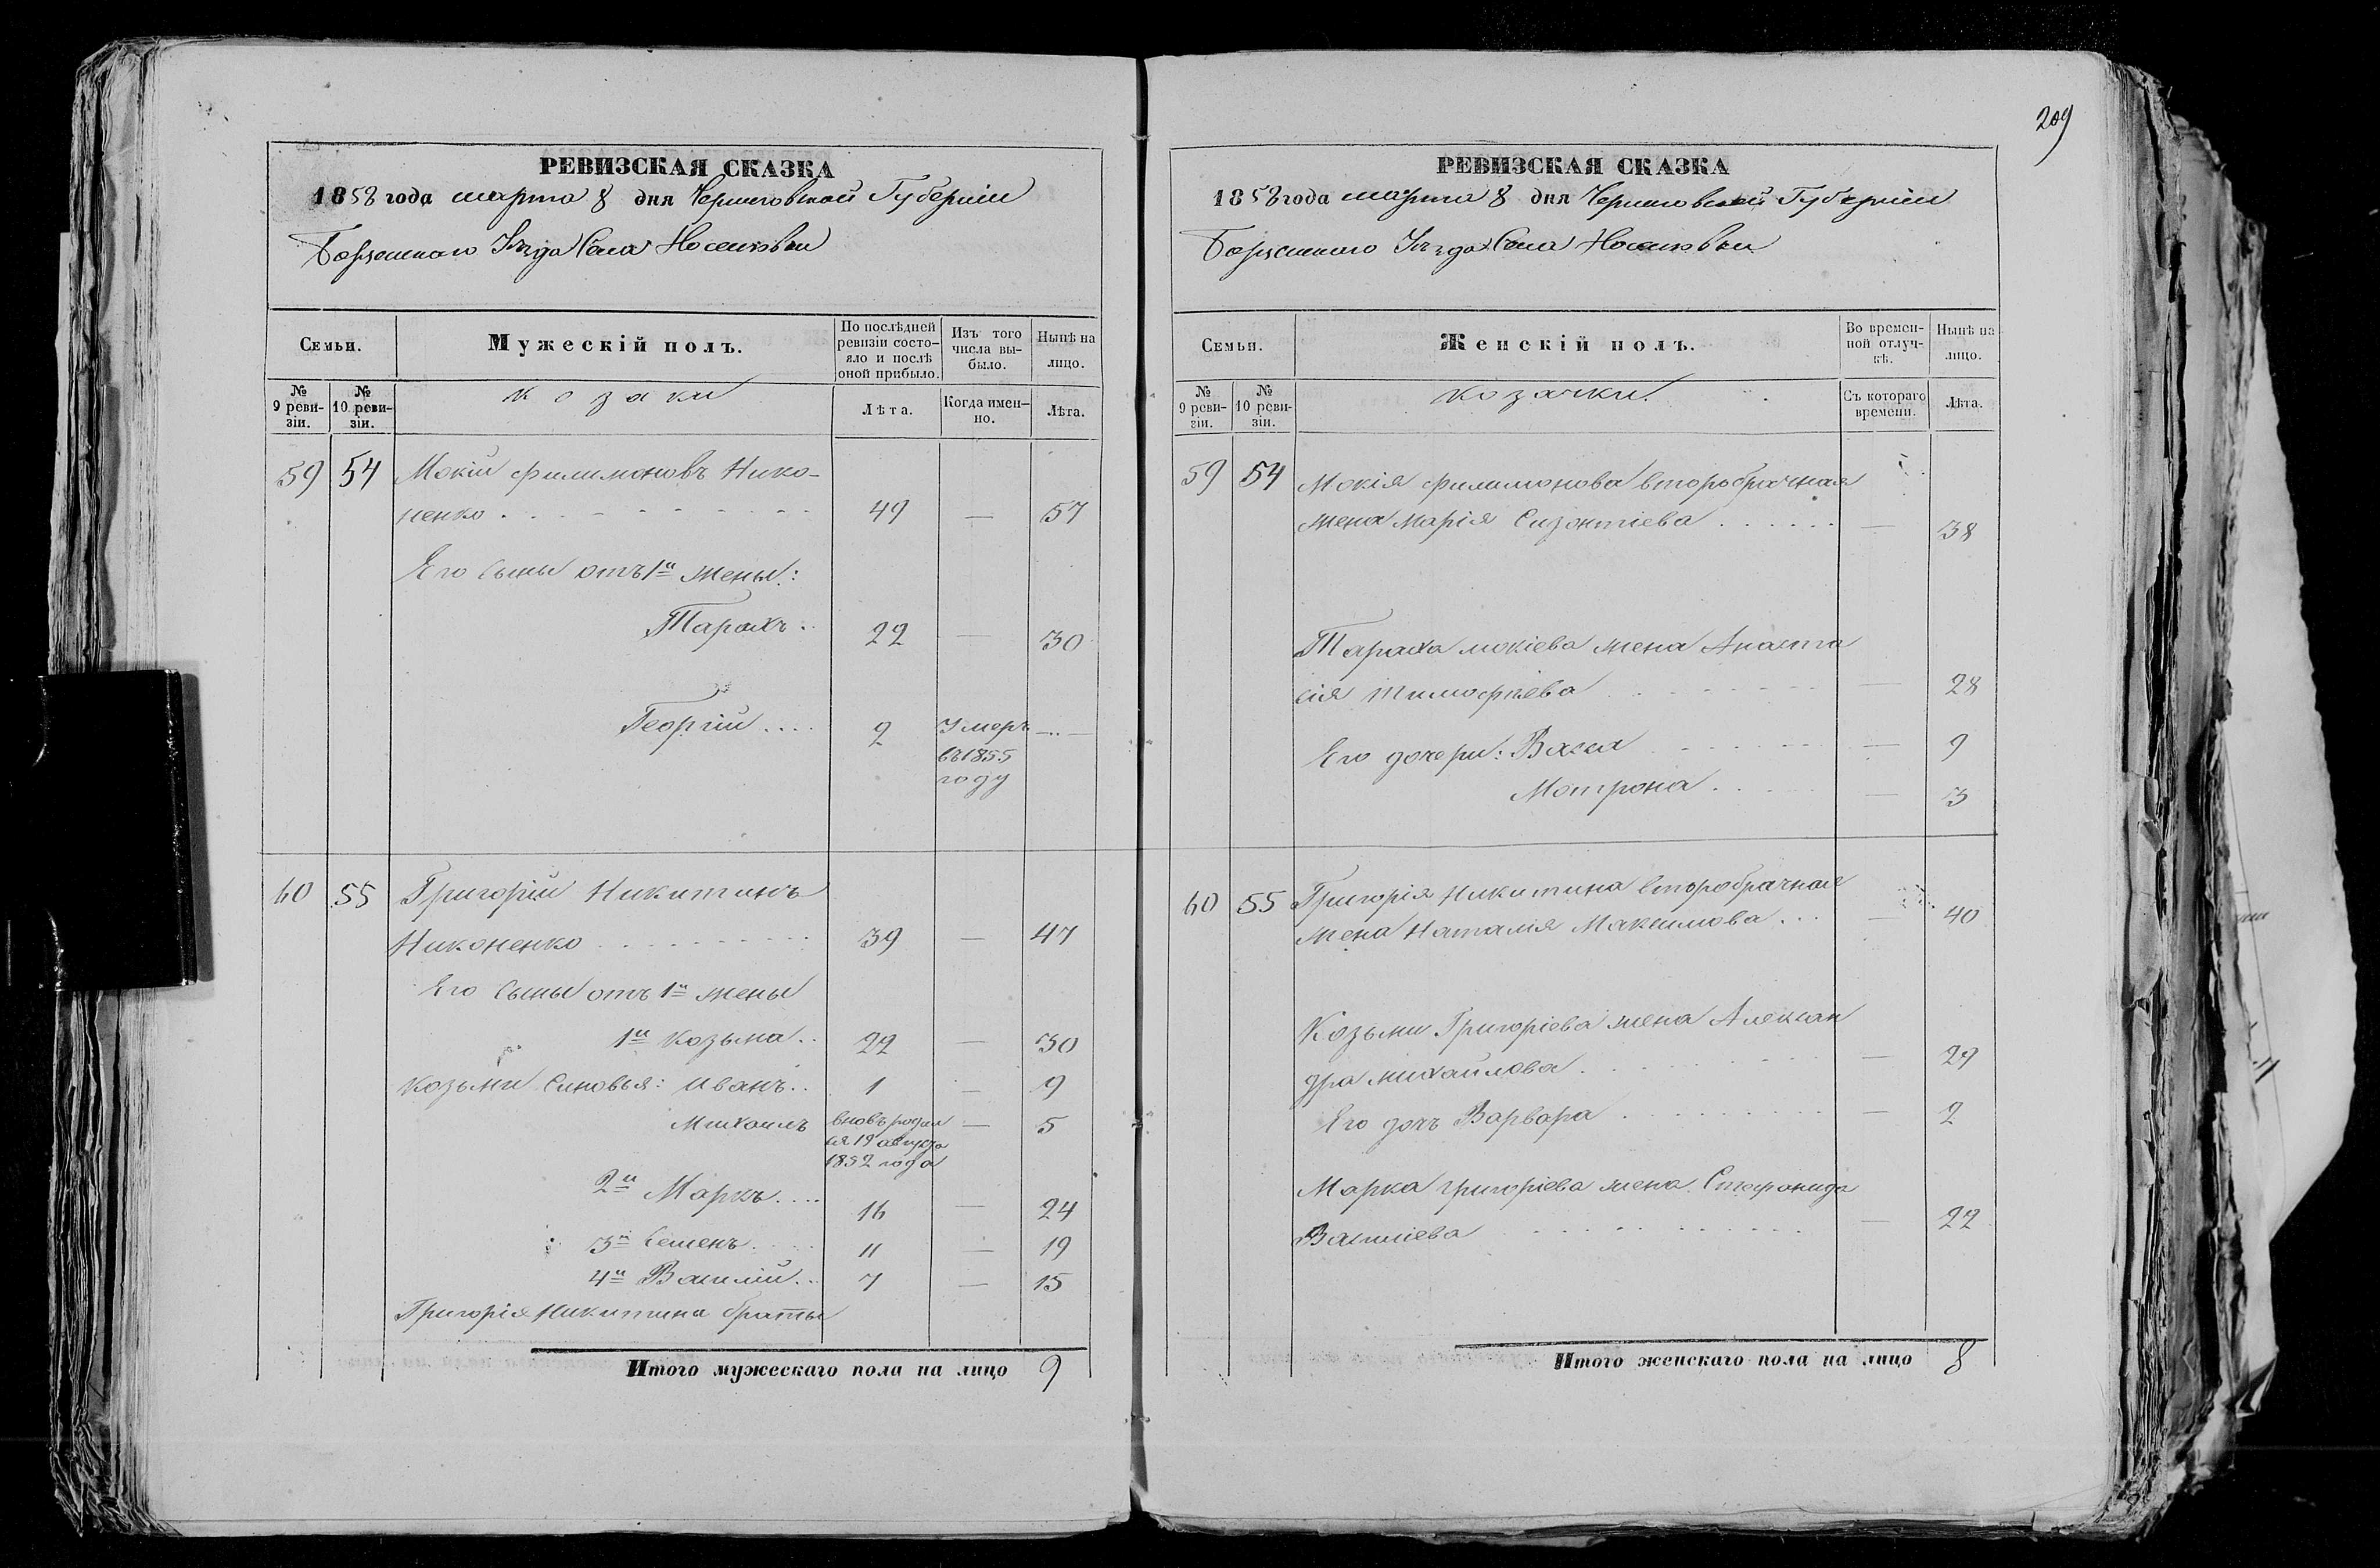 209
РЕВИЗСКАЯ СКАЗКА
1858 года марта 8 дня Черниговской Губерніи
Борзенскаго Уѣзда Села Носелевки
Семьи.
Мужескій полъ.
По послѣдней ревизіи состояло и послѣ оной прибыло.
Изъ того числа выбыло.
Нынѣ на лицо.
№ 9 ревизіи.
№ 10 ревизіи.
козаки
Лѣта.
Когда именно.
Лѣта.
59 54 Мокій филимоновъ Нико-
ненко 49 — 57
Его Сыны отъ 1й жены:
Тарахъ 22 — 30
Георгій 2 Умеръ —
въ 1855
году
60 55 Григорій Никитинъ
Никоненко 39 — 47
Его Сыны отъ 1й жены
1й Козьма 22 — 30
Козьми Синовья: Иванъ 1 — 9
Михаилъ вновь родил — 5
ся 19 августа
1852 года
2й Маркъ 16 — 24
3й Семенъ 11 — 19
4й Василій 7 — 15
Григорія Никитина браты
Итого мужескаго пола на лицо 9
РЕВИЗСКАЯ СКАЗКА
1858 года марта 8 дня Черниговской Губерніи
Борзенскаго Уѣзда Села Носелевки
Семьи.
Женскій полъ.
Во временной отлучкѣ.
Нынѣ на лицо.
№ 9 ревизіи.
№ 10 ревизіи.
козачки.
Съ котораго времени.
Лѣта.
59 54 Мокія филимонова второбрачная
жена Марія Сизонтіева — 38
Тараха мокіева жена Анаста
сія тимофѣева — 28
Его дочери: Васса — 9
Мотрона — 3
60 55 Григорія Никитина второбрачная
жена Наталія Максимова — 40
Козьми Григоріева жена Алексан
дра михайлова — 29
Его дочь Варвара — 2
Марка григоріева жена Стефанида
Василіева — 22
Итого женскаго пола на лицо 8